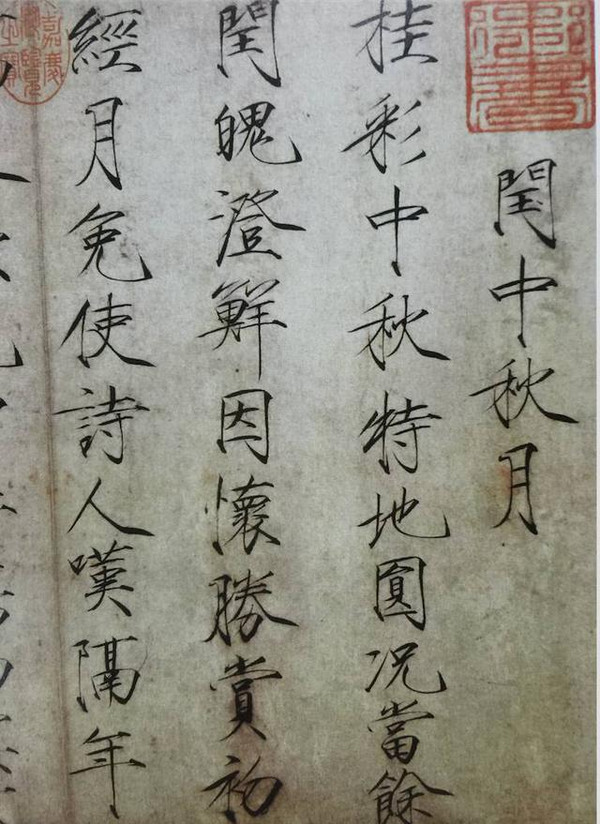 御書
閏中秋月
桂彩中秋特地圓況當餘
閏魄澄鮮因懷勝賞初
經月免使詩人嘆隔年